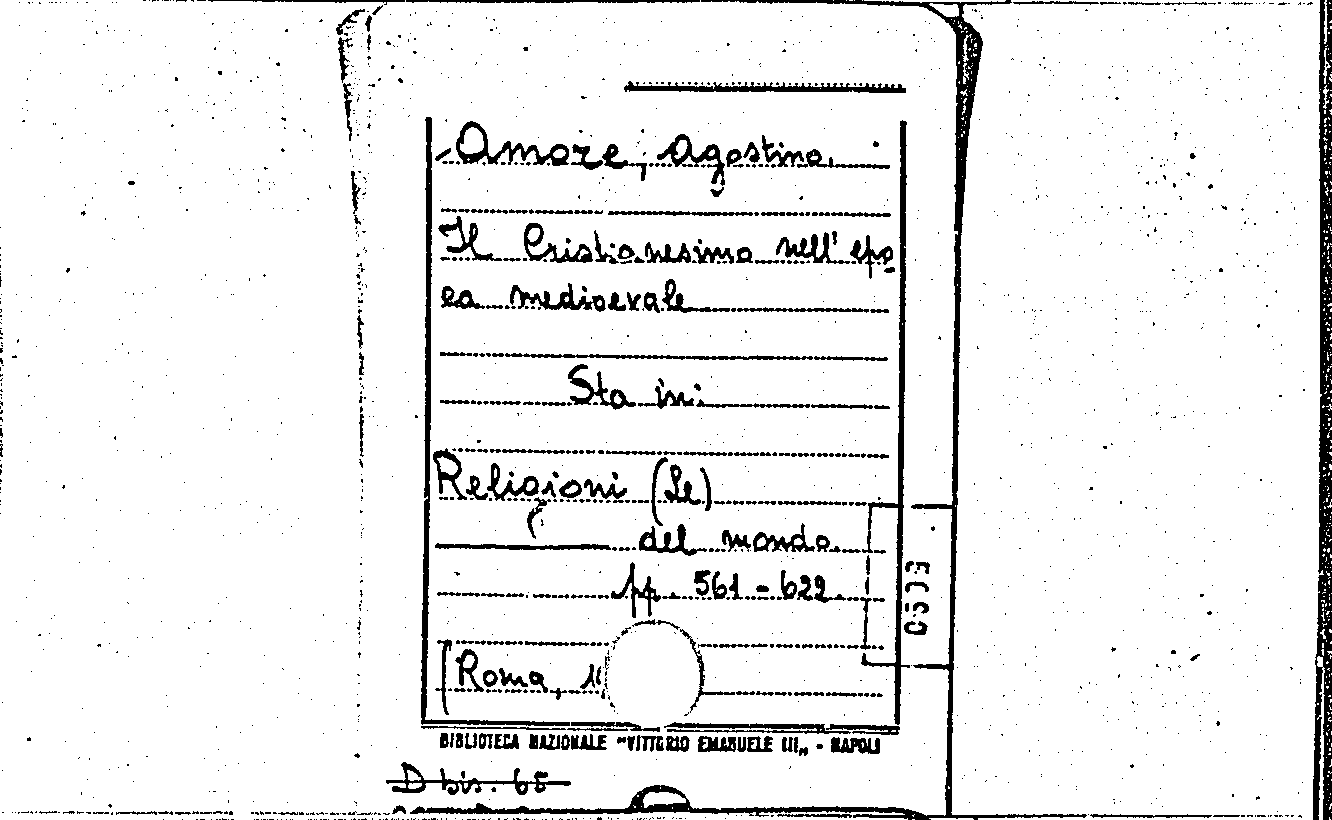 Amore, Agostino.
Il Cristianesimo nell'epo
ca medioevale
Sta in:
Religioni (Le)
del mondo.
pp. 561 - 622.
(Roma,
BIBLIOTECA NAZIONALE "VITTORIO EMANUELE III„ - NAPOLI
D bis. 65